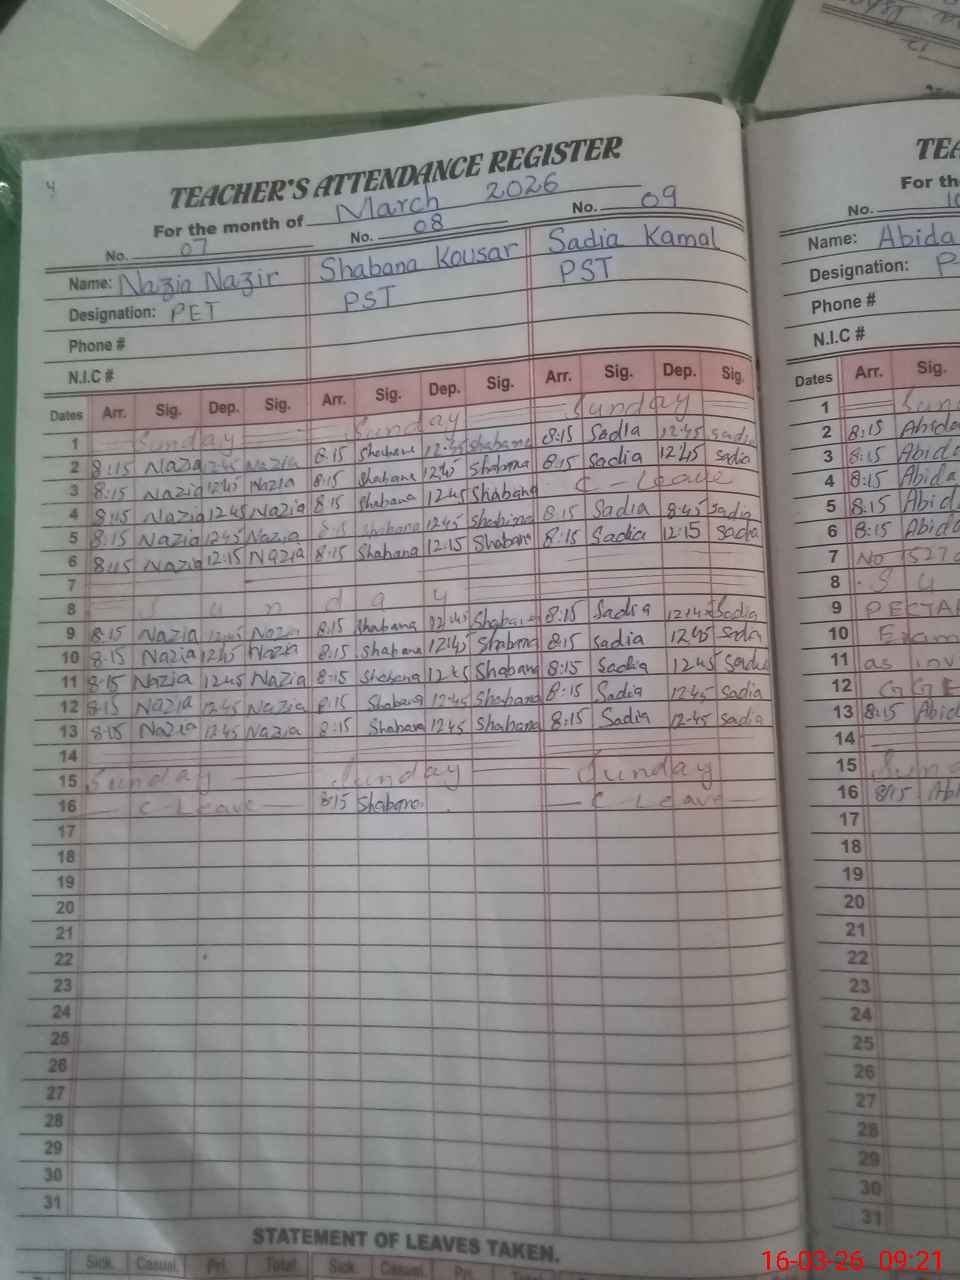 4
TEACHER'S ATTENDANCE REGISTER
For the month of March 2026
No. 07 No. 08 No. 09
Name: Nazia Nazir Shabana Kousar Sadia Kamal
Designation: PET PST PST
Phone #
N.I.C #
Dates Arr. Sig. Dep. Sig. Arr. Sig. Dep. Sig. Arr. Sig. Dep. Sig.
1 Sunday Sunday Sunday
2 8:15 Nazia 12:45 Nazia 8:15 Shabana 12:45 Shabana 8:15 Sadia 12:45 Sadia
3 8:15 Nazia 12:45 Nazia 8:15 Shabana 12:45 Shabana 8:15 Sadia 12:45 Sadia
4 8:15 Nazia 12:45 Nazia 8:15 Shabana 12:45 Shabana C-Leave
5 8:15 Nazia 12:45 Nazia 8:15 Shabana 12:45 Shabana 8:15 Sadia 8:45 Sadia
6 8:15 Nazia 12:15 Nazia 8:15 Shabana 12:15 Shabana 8:15 Sadia 12:15 Sadia
7
8 Sunday
9 8:15 Nazia 12:45 Nazia 8:15 Shabana 12:45 Shabana 8:15 Sadia 12:45 Sadia
10 8:15 Nazia 12:45 Nazia 8:15 Shabana 12:45 Shabana 8:15 Sadia 12:45 Sadia
11 8:15 Nazia 12:45 Nazia 8:15 Shabana 12:45 Shabana 8:15 Sadia 12:45 Sadia
12 8:15 Nazia 12:45 Nazia 8:15 Shabana 12:45 Shabana 8:15 Sadia 12:45 Sadia
13 8:15 Nazia 12:45 Nazia 8:15 Shabana 12:45 Shabana 8:15 Sadia 12:45 Sadia
14
15 Sunday Sunday Sunday
16 C Leave 8:15 Shabana C-Leave
17
18
19
20
21
22
23
24
25
26
27
28
29
30
31
STATEMENT OF LEAVES TAKEN.
Sick. Casual. Pri. Total. Sick. Casual.
TEA
For th
No. 10
Name: Abida
Designation: P
Phone #
N.I.C #
Dates Arr. Sig.
1 Sun
2 8:15 Abida
3 8:15 Abida
4 8:15 Abida
5 8:15 Abid
6 8:15 Abida
7 No 1527
8 S u
9
10 Exam
11 as inv
12 GGE
13 8:15 Abid
14
15 Sun
16 8:15 Abi
17
18
19
20
21
22
23
24
25
26
27
28
29
30
31
16-03-26 09:21